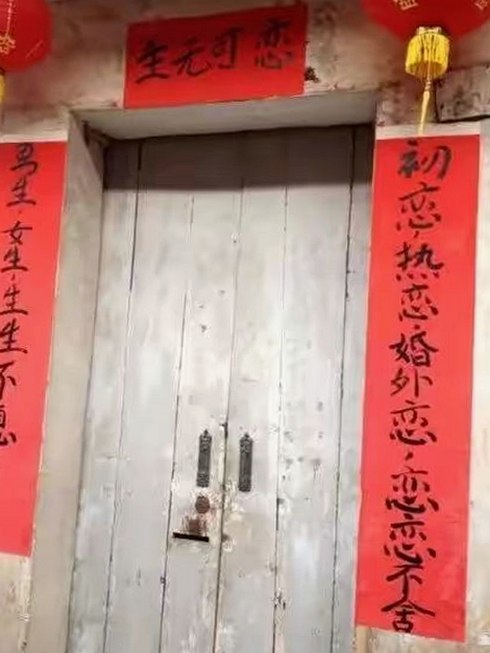 生无可恋
初恋，热恋，婚外恋，恋恋不舍
男生，女生，生生不息